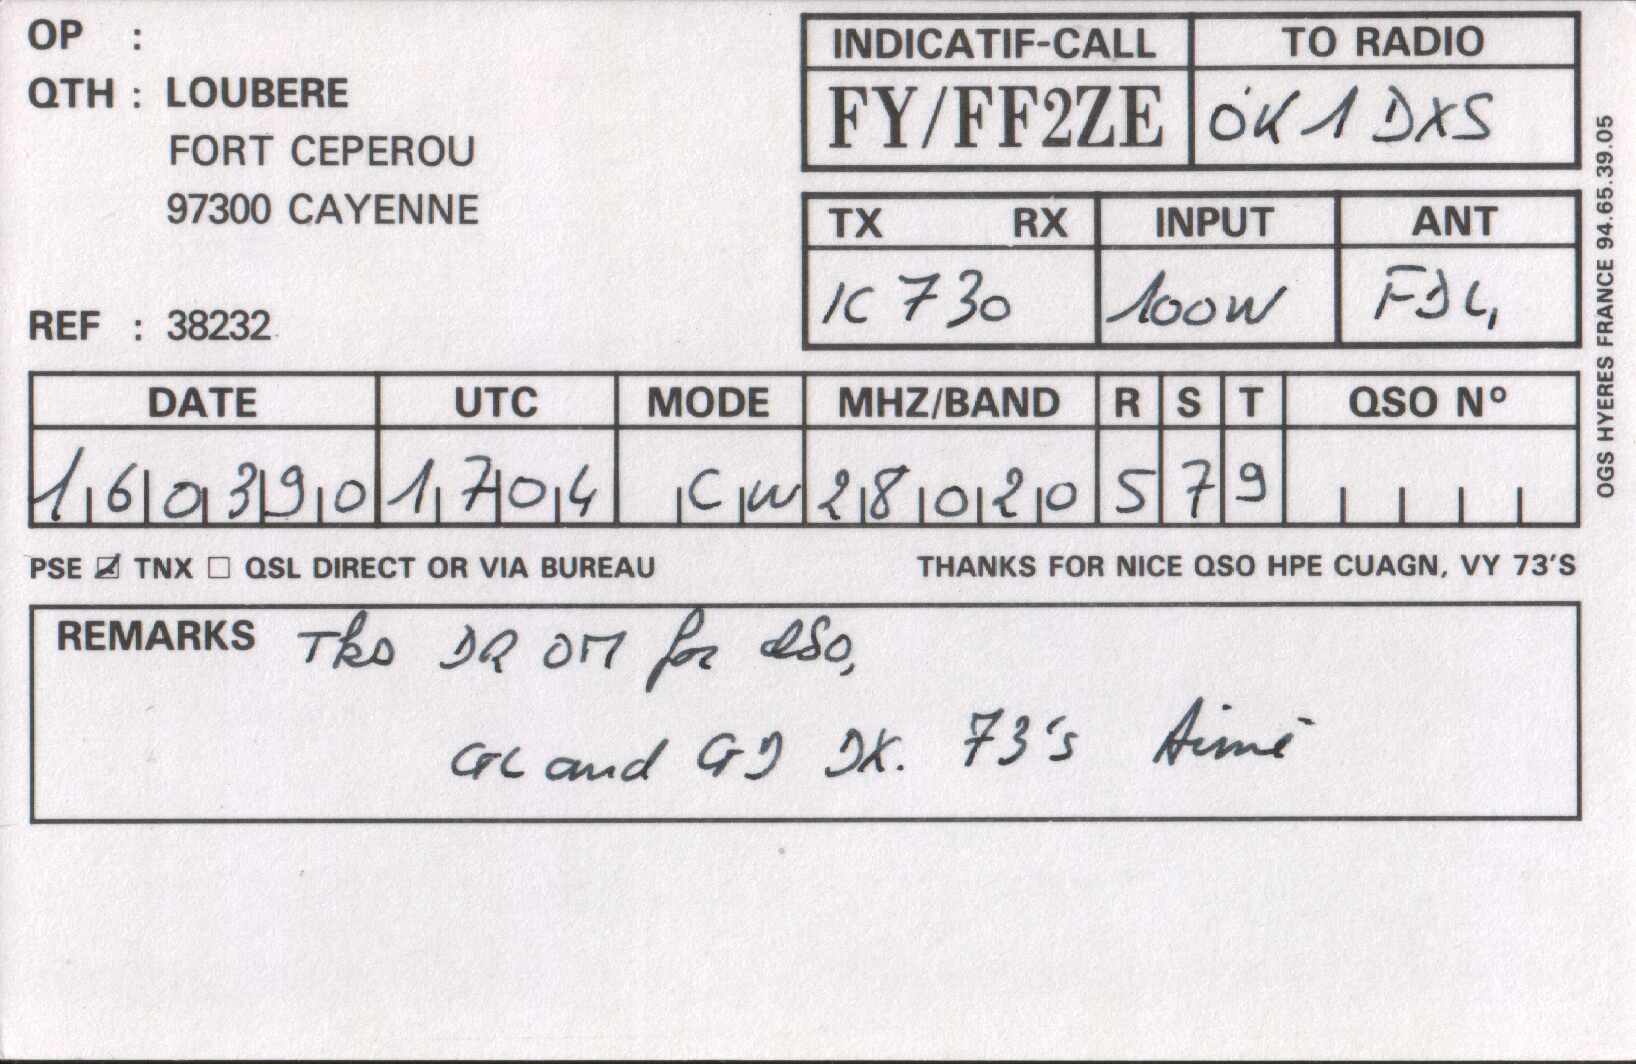 OP :
QTH : LOUBERE
FORT CEPEROU
97300 CAYENNE
REF : 38232
INDICATIF-CALL TO RADIO
FY/FF2ZE OK1DXS
TX RX INPUT ANT
IC 730 100W FD4
OGS HYERES FRANCE 94.65.39.05
DATE UTC MODE MHZ/BAND R S T QSO N°
160390 1704 CW 28020 5 7 9
PSE ☑ TNX ☐ QSL DIRECT OR VIA BUREAU THANKS FOR NICE QSO HPE CUAGN, VY 73'S
REMARKS Tks DR OM for QSO,
GL and GD DX. 73's Aimé